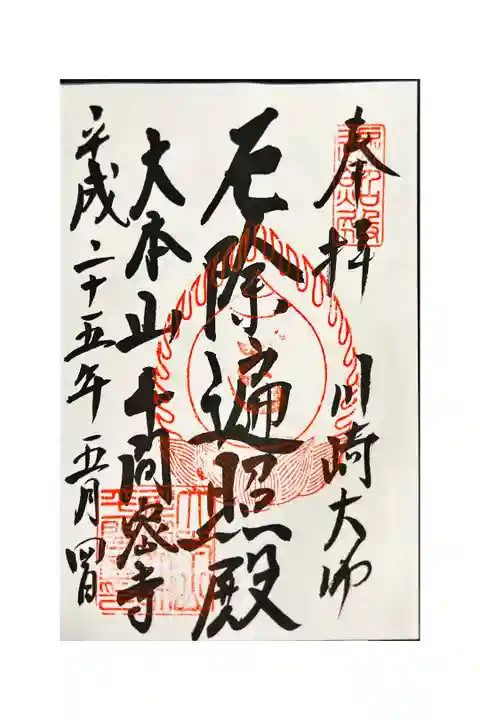 奉拝 川崎大师
厄除遍照殿
大本山 平間寺
平成二十五年 五月四日